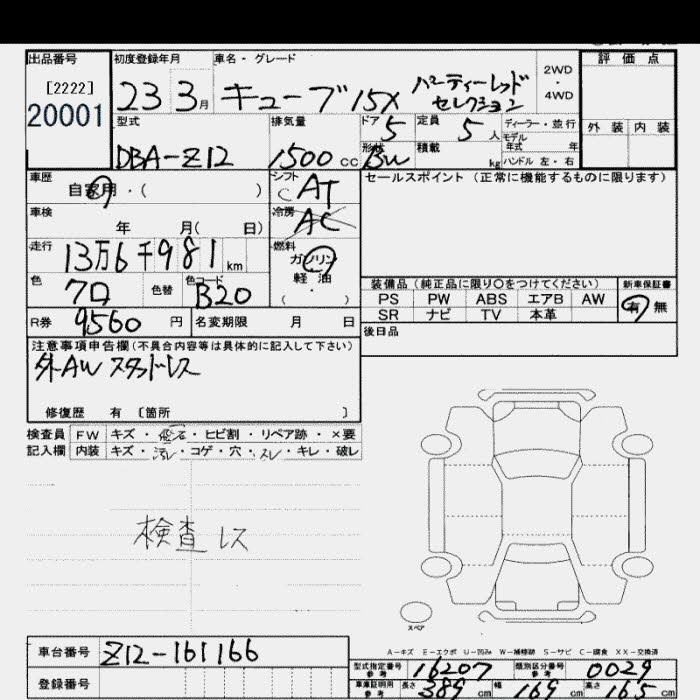 出品番号 初度登録年月 車名・グレード 評価点
[2222] 23 3月 キューブ 15X パーティーレッド セレクション 2WD・4WD
20001 外装 内装
型式 排気量 ドア 5 定員 5人 ディーラー・並行
DBA-Z12 1500cc 形状 BW 積載 kg モデル年式 年
ハンドル 左・右
車歴 自家用・( ) シフト C AT セールスポイント(正常に機能するものに限ります)
車検 年 月( 日) 冷房 AC
走行 13万6千981km 燃料 ガソリン 軽油 ( ・ )
色 クロ 色替 色コード B20
装備品(純正品に限り○をつけてください) 新車保証書
PS PW ABS エアB AW 有・無
SR ナビ TV 本革
R券 9560円 名変期限 月 日 後日品
注意事項申告欄(不具合内容等は具体的に記入して下さい)
外AW スタッドレス
修復歴 有 〔箇所 〕
検査員 FW キズ・飛石・ヒビ割・リペア跡・×要
記入欄 内装 キズ・汚レ・コゲ・穴・スレ・キレ・破レ
検査レス
スペア
A-キズ E-エクボ U-凹み W-補修跡 S-サビ C-腐食 XX-交換済
車台番号 Z12-161166
型式指定番号 参考 16207 類別区分番号 参考 0029
登録番号
車庫証明用 参考 長さ 389cm 幅 169cm 高さ 165cm